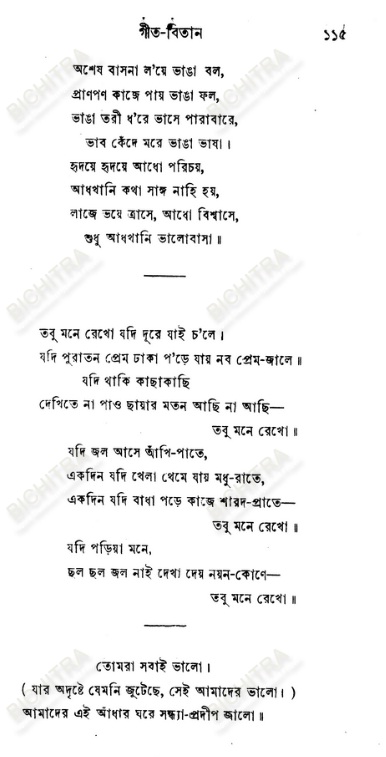 গীত-বিতান ১১৫
অশেষ বাসনা ল'য়ে ভাঙা বল,
প্রাণপণ কাজে পায় ভাঙা ফল,
ভাঙা তরী ধ'রে ভাসে পারাবারে,
ভাব কেঁদে মরে ভাঙা ভাষা।
হৃদয়ে হৃদয়ে আধো পরিচয়,
আধখানি কথা সাঙ্গ নাহি হয়,
লাজে ভয়ে ত্রাসে, আধো বিশ্বাসে,
শুধু আধখানি ভালোবাসা॥
তবু মনে রেখো যদি দূরে যাই চ'লে।
যদি পুরাতন প্রেম ঢাকা প'ড়ে যায় নব প্রেম-জালে॥
যদি থাকি কাছাকাছি
দেখিতে না পাও ছায়ার মতন আছি না আছি—
তবু মনে রেখো॥
যদি জল আসে আঁখি-পাতে,
একদিন যদি খেলা থেমে যায় মধু-রাতে,
একদিন যদি বাধা পড়ে কাজে শারদ-প্রাতে—
তবু মনে রেখো॥
যদি পড়িয়া মনে,
ছল ছল জল নাই দেখা দেয় নয়ন-কোণে—
তবু মনে রেখো॥
তোমরা সবাই ভালো।
( যার অদৃষ্টে যেমনি জুটেছে, সেই আমাদের ভালো। )
আমাদের এই আঁধার ঘরে সন্ধ্যা-প্রদীপ জালো॥
BICHITRA
BICHITRA
BICHITRA
BICHITRA
BICHITRA
BICHITRA
BICHITRA
BICHITRA